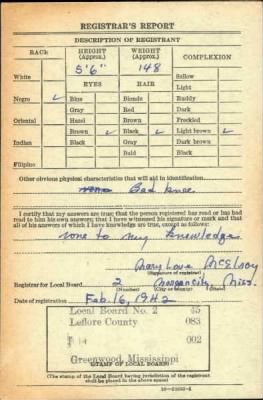 REGISTRAR'S REPORT
DESCRIPTION OF REGISTRANT
RACE HEIGHT (Approx.) WEIGHT (Approx.) COMPLEXION
5'6" 148
White Sallow
EYES HAIR Light
Negro ✓ Blue Blonde Ruddy
Gray Red Dark
Oriental Hazel Brown Freckled
Brown ✓ Black ✓ Light brown ✓
Indian Black Gray Dark brown
Bald Black
Filipino
Other obvious physical characteristics that will aid in identification
none Bad knee
I certify that my answers are true; that the person registered has read or has had
read to him his own answers; that I have witnessed his signature or mark and that
all of his answers of which I have knowledge are true, except as follows:
none to my knowledge
McElroy
(Signature of registrar)
Registrar for Local Board 2 Morgan City Miss.
(Number) (City or county) (State)
Date of registration Feb. 16, 1942
Local Board No. 2 45
Leflore County 083
002
Greenwood, Mississippi
(STAMP OF LOCAL BOARD)
(The stamp of the Local Board having jurisdiction of the registrant
shall be placed in the above space)